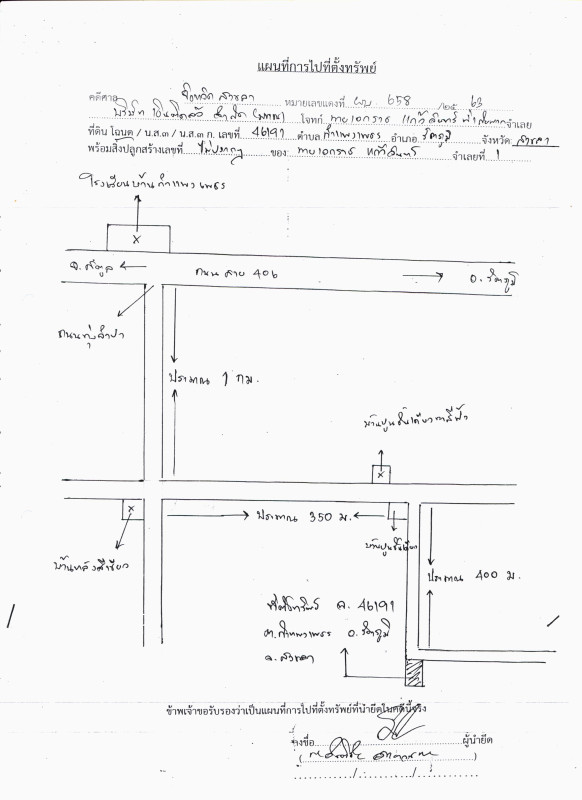 แผนที่การไปที่ตั้งทรัพย์
คดีศาล จังหวัดสงขลา หมายเลขแดงที่ ผบ. 658 /25 63
บริษัท เงินติดล้อ จำกัด (มหาชน) โจทก์ นายเอกราช แก้วจันทร์ จำเลย
ที่ดิน โฉนด / น.ส.๓ / น.ส.๓ ก. เลขที่ 46191 ตำบล กำแพงเพชร อำเภอ รัตภูมิ จังหวัด สงขลา
พร้อมสิ่งปลูกสร้างเลขที่ ไม่ปรากฏ ของ นายเอกราช แก้วจันทร์ จำเลยที่ 1
โรงเรียนบ้านกำแพงเพชร
X
จ.สตูล
ถนน สาย 406
อ. รัตภูมิ
ถนนทุ่งลำปา
ประมาณ 1 กม.
บ้านปูนชั้นเดียวทาสีฟ้า
X
X
ประมาณ 350 ม.
บ้านหลังสีเขียว
บ้านปูนชั้นเดียว
ประมาณ 400 ม.
ที่ตั้งทรัพย์ ฉ. 46191
ต.กำแพงเพชร อ. รัตภูมิ
จ. สงขลา
ข้าพเจ้าขอรับรองว่าเป็นแผนที่การไปที่ตั้งทรัพย์ที่นำยึดในคดีนี้จริง
ลงชื่อ ผู้นำยึด